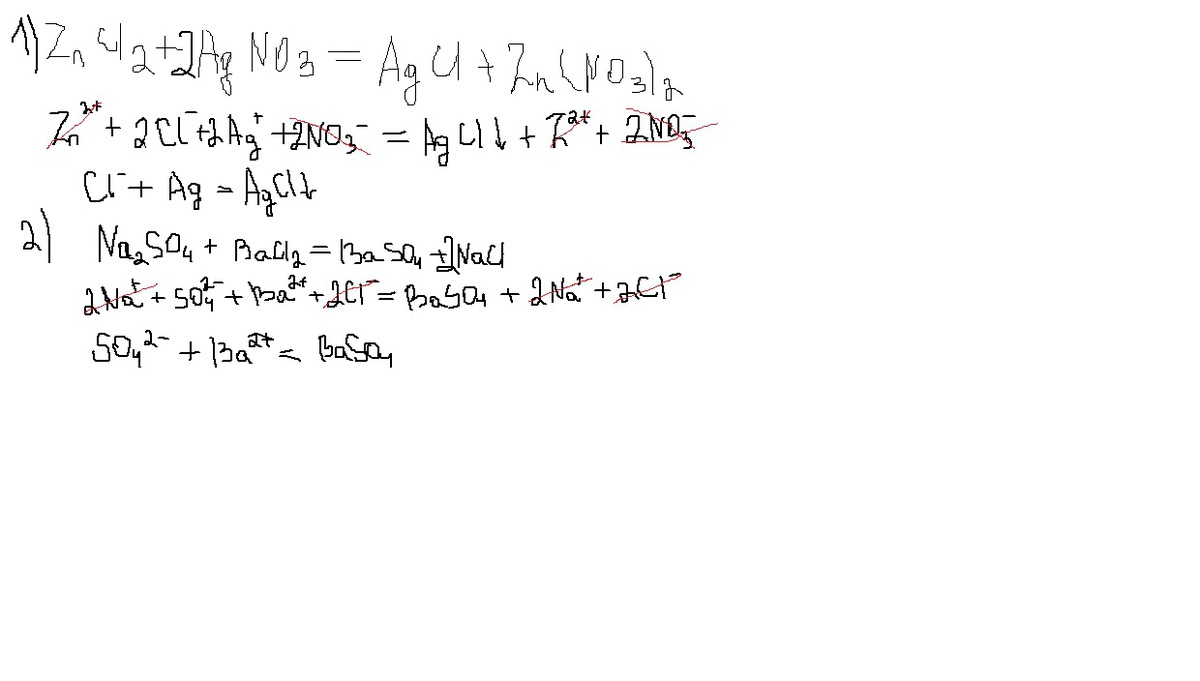 1) ZnCl₂ + 2AgNO₃ = AgCl + Zn(NO₃)₂
Zn²⁺ + 2Cl⁻ + 2Ag⁺ + 2NO₃⁻ = AgCl↓ + Z²⁺ + 2NO₃⁻
Cl⁻ + Ag = AgCl↓
2) Na₂SO₄ + BaCl₂ = BaSO₄ + 2NaCl
2Na⁺ + SO₄²⁻ + Ba²⁺ + 2Cl⁻ = BaSO₄ + 2Na⁺ + 2Cl⁻
SO₄²⁻ + Ba²⁺ = BaSO₄